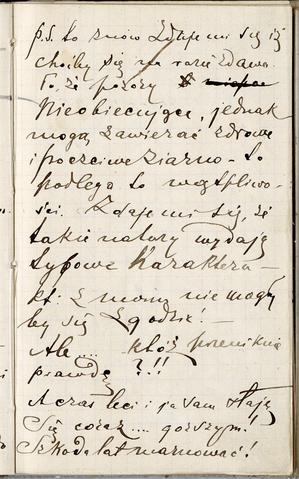 p.s. to znów zdaje mi się iż
choćby się na razie zdawa-
ło, że pozory
Nieobiecujące, jednak
mogą zawierać zdrowe
i poczciwe ziarno – to
podlega to wątpliwo-
ści. Zdaje mi się, że
takie natury wydają
typowe Karaktera –
kt: z moim nie mogły
by się zgodzić! –
Ale .... któż przeniknie
prawdę ?!!
A czas leci i ja sam staję
się coraz .... gorszym!
Szkoda lat marnować!